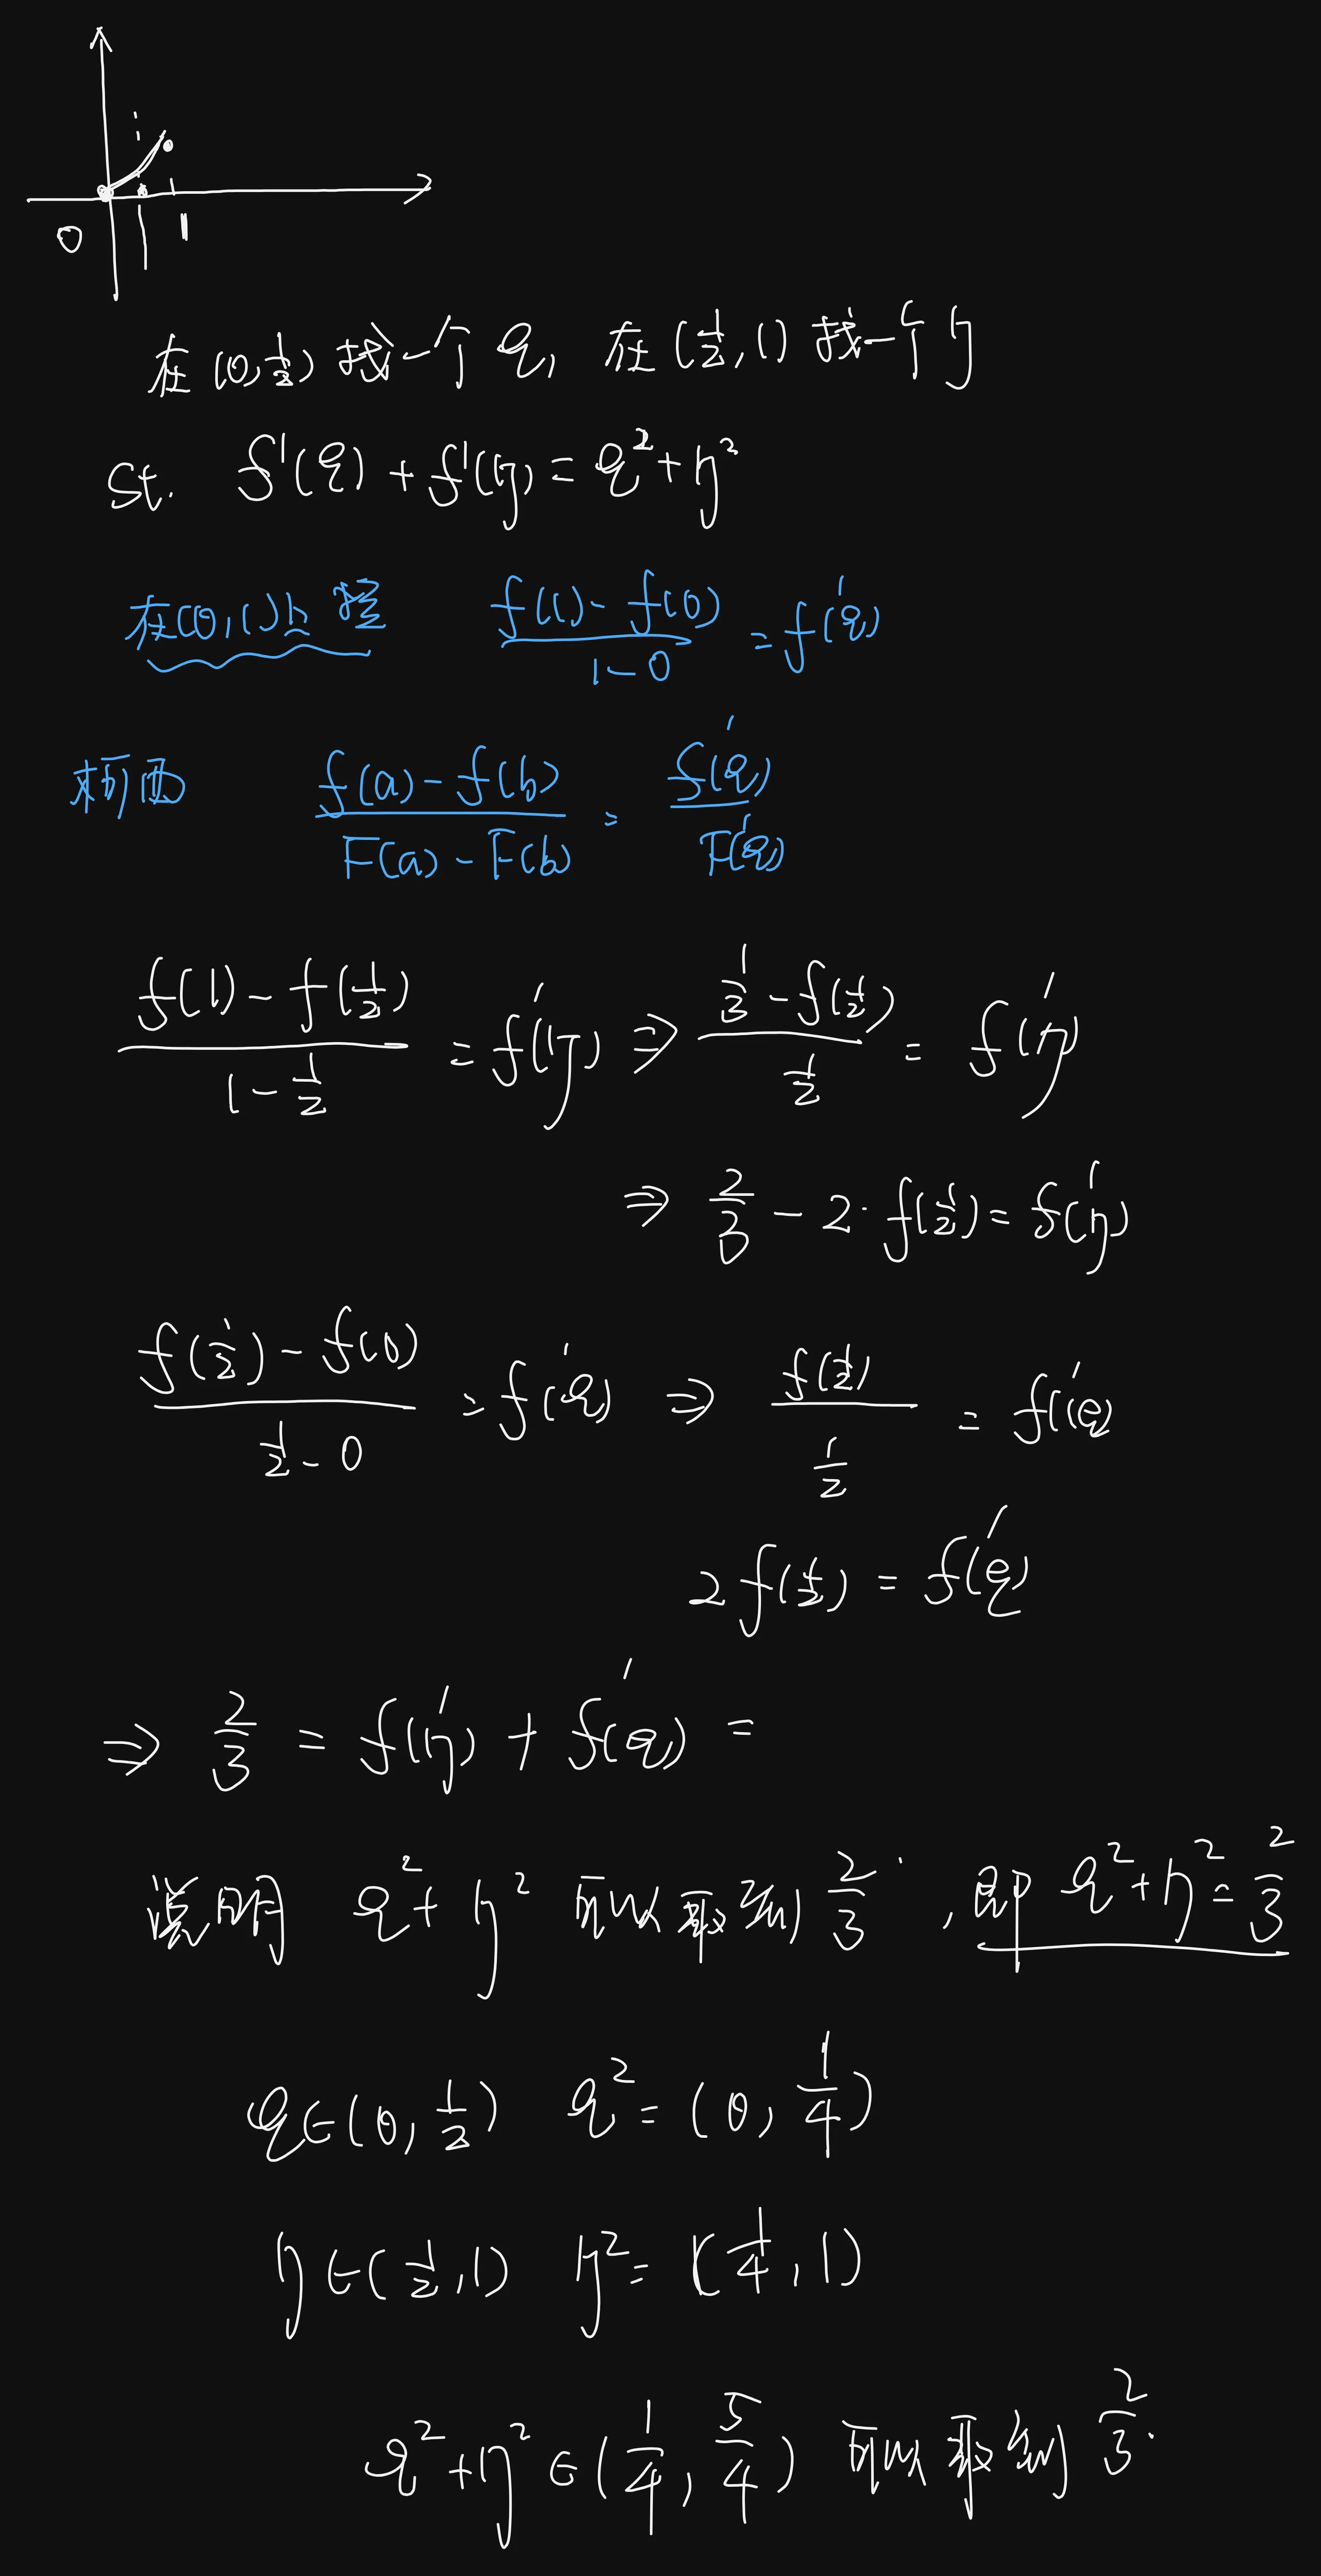 0 1
在(0,1/2)找一个ξ, 在(1/2,1)找一个η
St. f'(ξ)+f'(η)=ξ²+η²
在(0,1)上 (f(1)-f(0))/(1-0)=f'(ξ)
柯西 (f(a)-f(b))/(F(a)-F(b))=f'(ξ)/F'(ξ)
(f(1)-f(1/2))/(1-1/2)=f'(η)⇒(1/3-f(1/2))/(1/2)=f'(η)
⇒2/3-2·f(1/2)=f'(η)
(f(1/2)-f(0))/(1/2-0)=f'(ξ)⇒f(1/2)/(1/2)=f'(ξ)
2f(1/2)=f'(ξ)
⇒2/3=f'(η)+f'(ξ)=
说明 ξ²+η² 可以取到 2/3, 即 ξ²+η²=2/3
ξ∈(0,1/2) ξ²=(0,1/4)
η∈(1/2,1) η²=(1/4,1)
ξ²+η²∈(1/4,5/4) 可以取到 2/3.